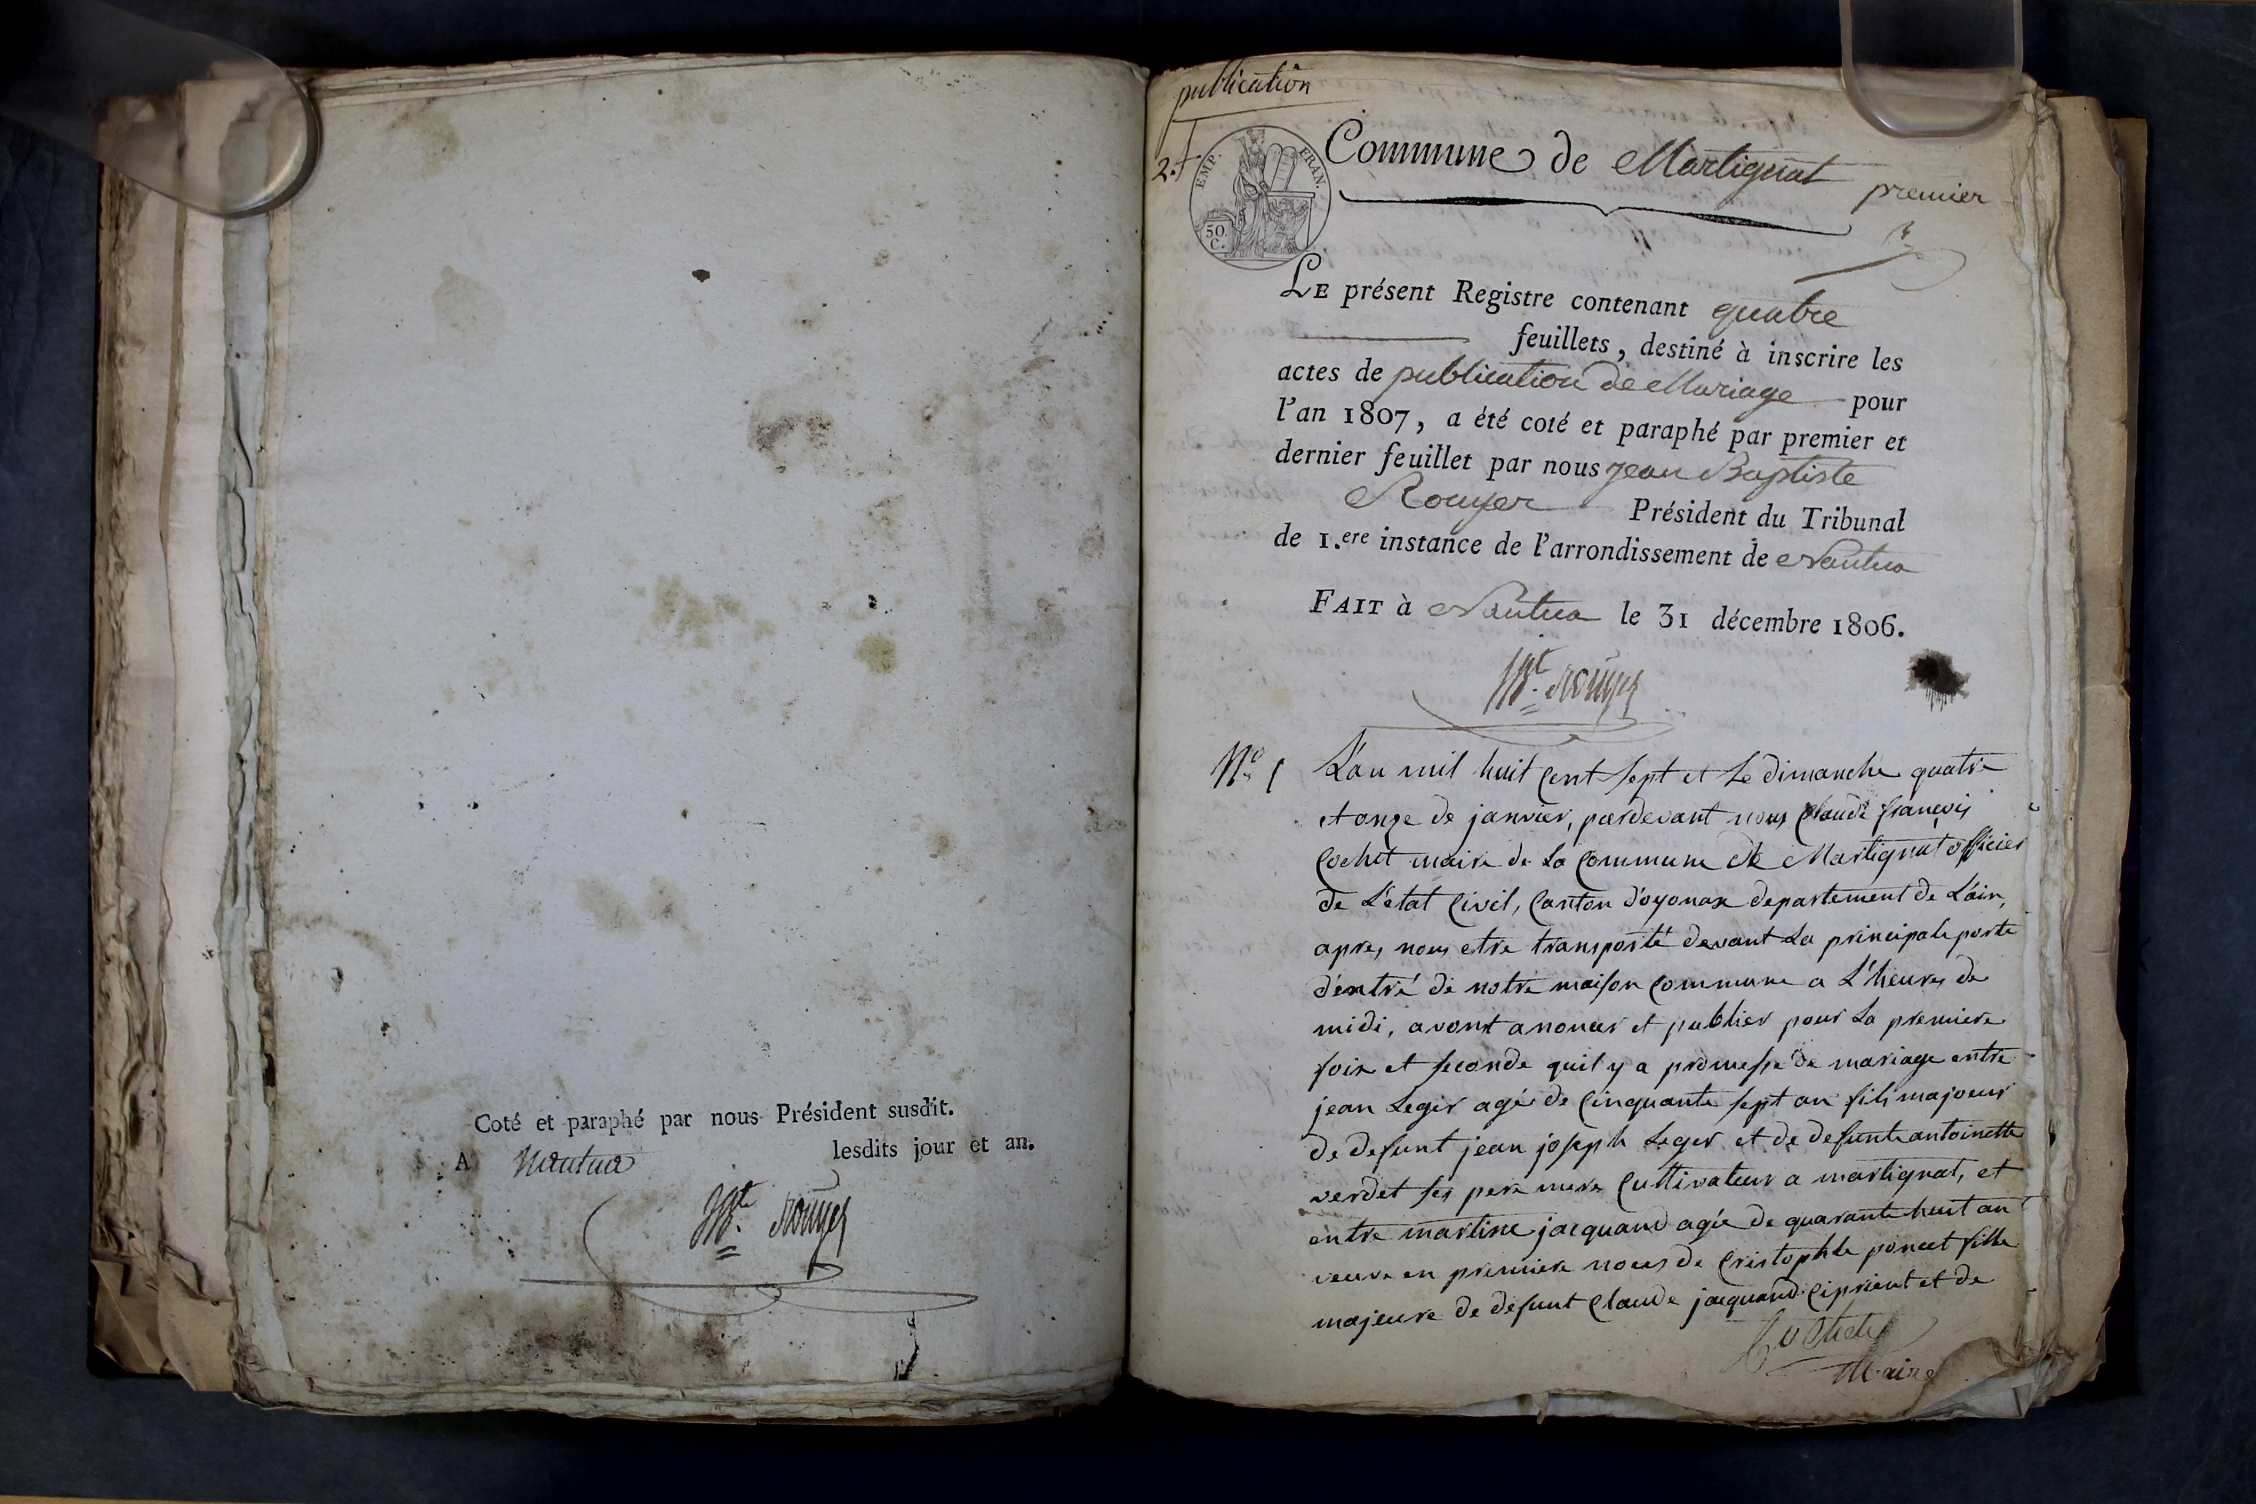 Coté et paraphé par nous Président susdit.
A Nantua lesdits jour et an.
JBte. Rouyer
publication
2.
EMP. FRAN.
50. C.
Commune de Martignat
premier
LE présent Registre contenant quatre
feuillets, destiné à inscrire les
actes de publication de Mariage pour
l'an 1807, a été coté et paraphé par premier et
dernier feuillet par nous Jean Baptiste
Rouyer Président du Tribunal
de 1.ere instance de l'arrondissement de Nantua
FAIT à Nantua le 31 décembre 1806.
JBt. Rouyer
No. 1
L'an mil huit cent sept et le dimanche quatre
et onze de janvier, pardevant nous Claude françois
Cochet maire de la commune de Martignat officier
de L'état Civil, Canton d'oyonax departement de L'ain,
apres nous etre transporté devant La principale porte
d'éntré de notre maison Commune a L'heures de
midi, avont anoncer et publier pour La premiere
foix et seconde quil y a promesse de mariage entre
jean Leger agé de Cinquante sept an fils majeur
de defunt jean joseph Leger et de defunte antoinette
verdet ses pere mere Cultivateur a martignat, et
entre martine jacquand agée de quarante huit an
veuve en premiere noces de Cristophle poncet fille
majeure de defunt Claude jacquand Ciprient et de
Cochet
Maire